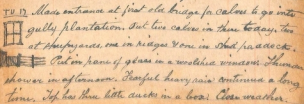 Tu 17 Make entrance at first old bridge for calves to go into
gully plantation. Put two calves in there today, two
at Hurdyards, one in ridges & one in old paddock.
Put on pane of glass in a woolshed window. Thunder
shower in afternoon. Cheerful heavy rain continued a long
time. Top has three little ducks in a box. Close weather